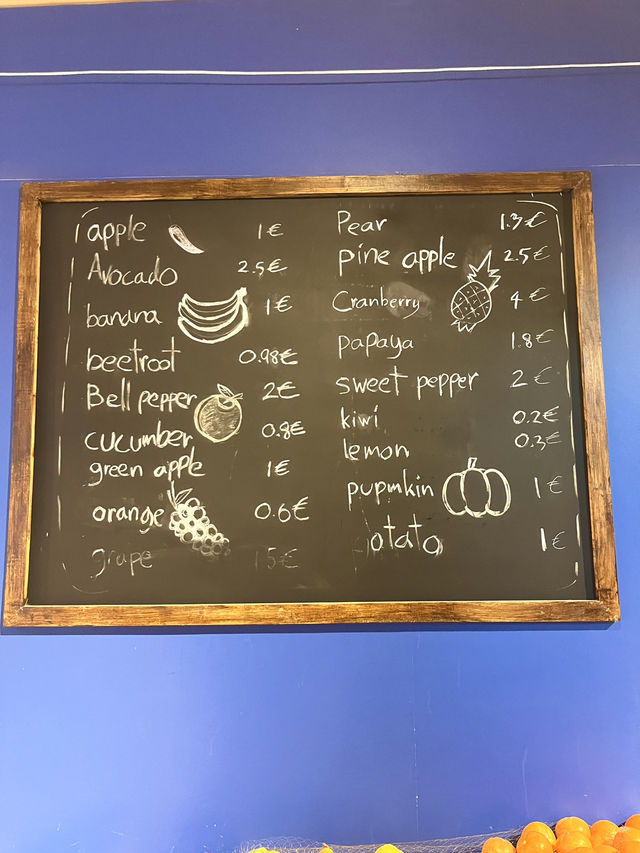 apple 1€
Avocado 2.5€
banana 1€
beetroot 0.98€
Bell pepper 2€
cucumber 0.8€
green apple 1€
orange 0.6€
grape 5€
Pear 1.3€
pine apple 2.5€
Cranberry 4€
papaya 1.8€
sweet pepper 2€
kiwi 0.2€
lemon 0.3€
pupmkin 1€
otato 1€